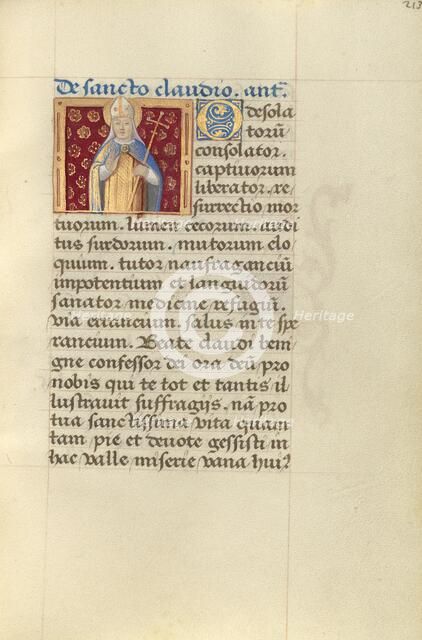 213
De sancto claudio. ant̄.
O desola
torū
consolator.
captiuorum
liberator. re
surrectio mor
tuorum. lumen cecorum. audi
tus surdorum. mutorum elo
quium. tutor naufraganciū
impotentium et languidorū
sanator medicine refugiū.
via errancium. salus in te spe
rancium. Beate claudi beni
gne confessor dei ora deū pro
nobis qui te tot et tantis il
lustrauit suffragijs. nā pro
tua sanctissima vita quam
tam pie et deuote gessisti in
hac valle miserie vana hui?
Heritage
Heritage